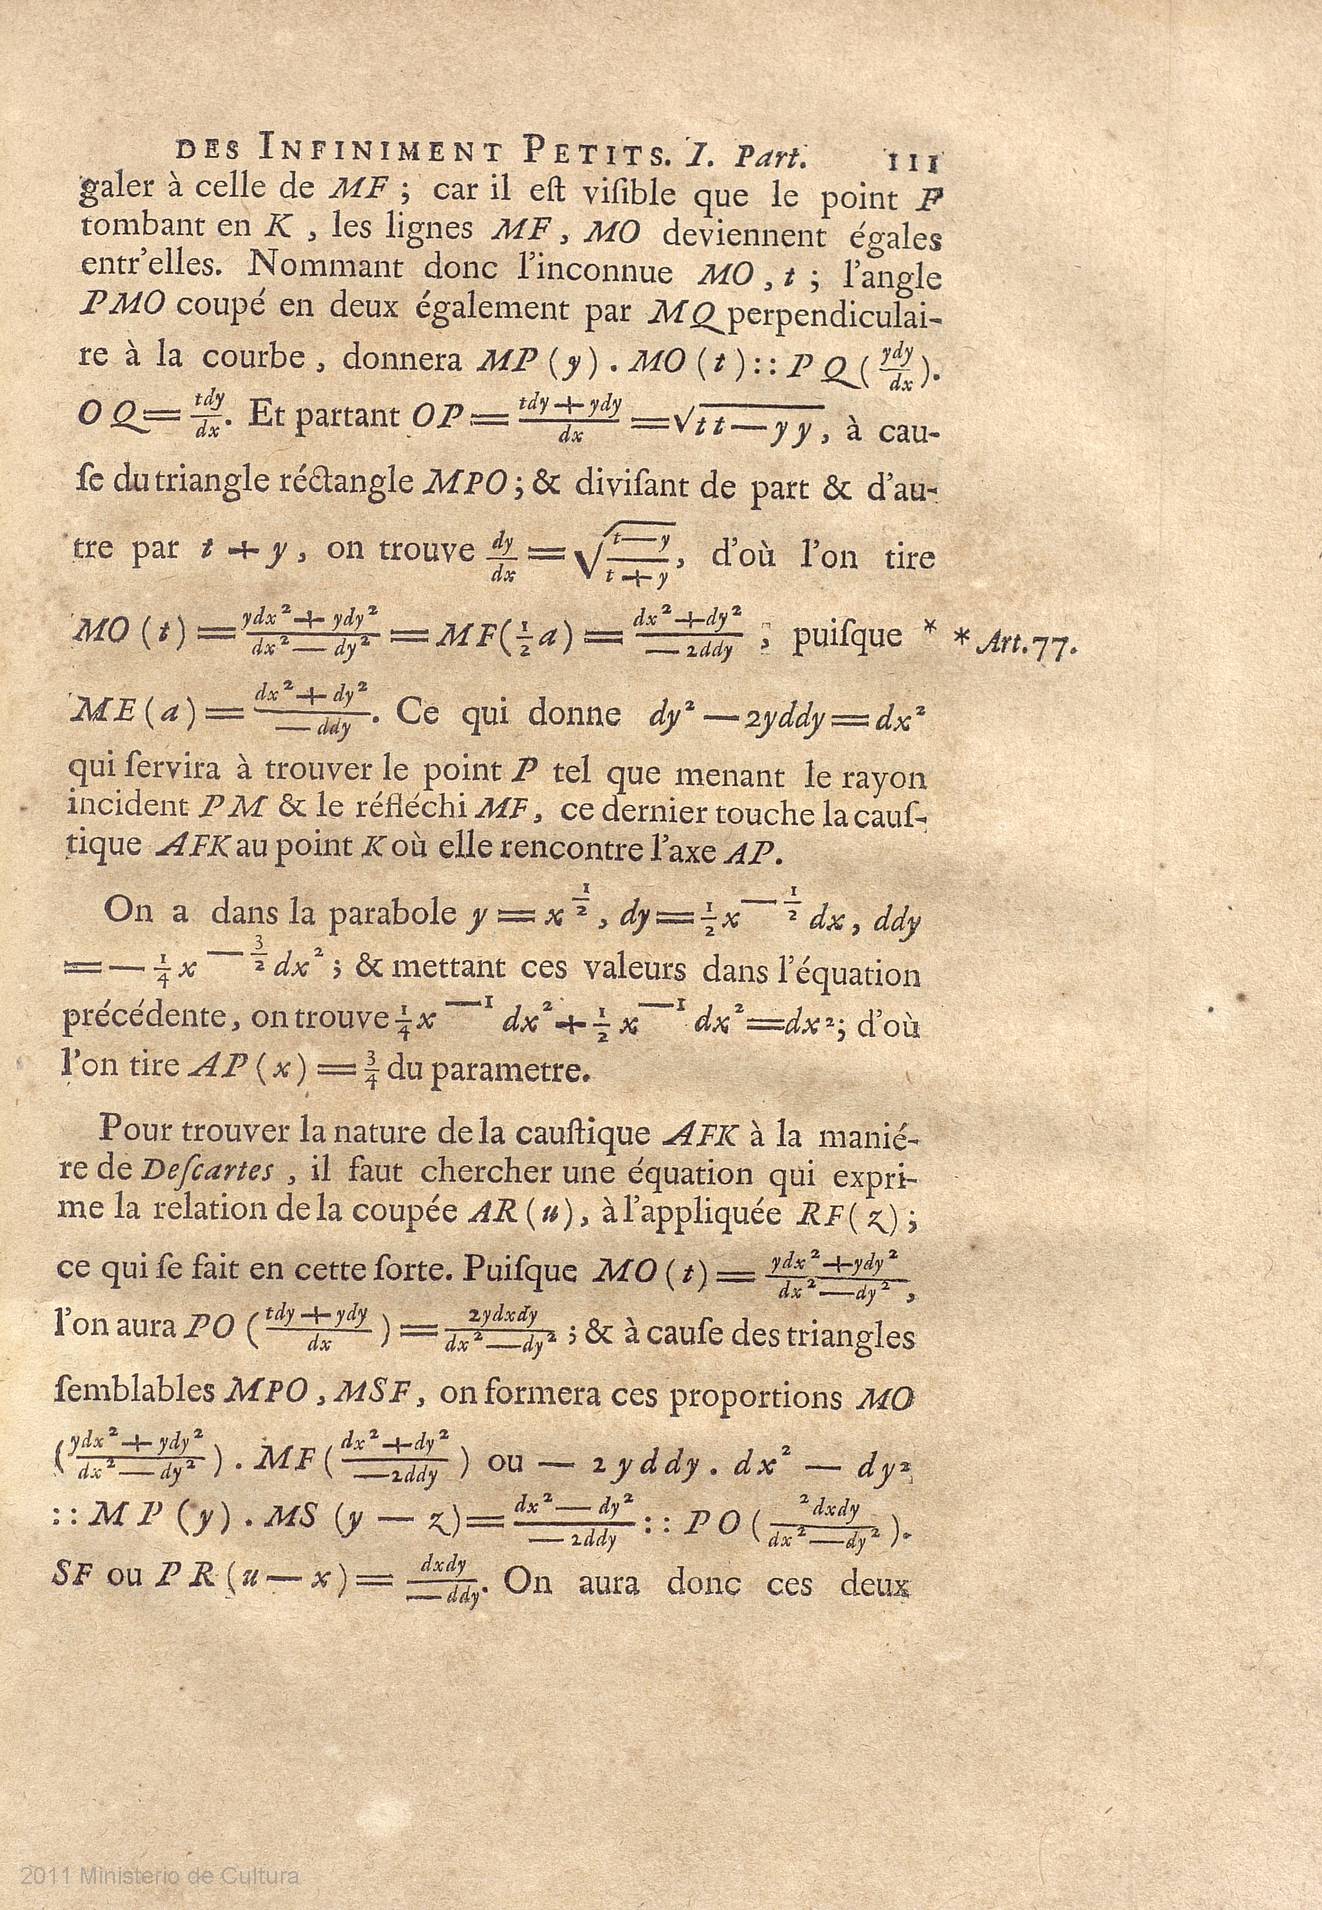 DES INFINIMENT PETITS. I. Part. 111
galer à celle de MF ; car il eſt viſible que le point P
tombant en K , les lignes MF , MO deviennent égales
entr'elles. Nommant donc l'inconnue MO , t ; l'angle
PMO coupé en deux également par MQ perpendiculai-
re à la courbe , donnera MP (y) . MO (t) :: P Q (ydy/dx).
O Q = tdy/dx. Et partant OP = (tdy + ydy)/dx = √(tt — yy), à cau-
ſe du triangle réctangle MPO ; & diviſant de part & d'au-
tre par t + y , on trouve dy/dx = √((t — y)/(t + y)), d'où l'on tire
MO (t) = (ydx² + ydy²)/(dx² — dy²) = MF (½ a) = (dx² + dy²)/(— 2ddy) ; puiſque * * Art. 77.
ME (a) = (dx² + dy²)/(— ddy). Ce qui donne dy² — 2yddy = dx²
qui ſervira à trouver le point P tel que menant le rayon
incident PM & le réfléchi MF, ce dernier touche la cauſ-
tique AFK au point K où elle rencontre l'axe AP.
On a dans la parabole y = x^½ , dy = ½ x^(—½) dx , ddy
= — ¼ x^(—3/2) dx² ; & mettant ces valeurs dans l'équation
précédente, on trouve ¼ x^(—1) dx² + ½ x^(—1) dx² = dx² ; d'où
l'on tire AP (x) = ¾ du parametre.
Pour trouver la nature de la cauſtique AFK à la manié-
re de Deſcartes , il faut chercher une équation qui expri-
me la relation de la coupée AR (u) , à l'appliquée RF (z) ;
ce qui ſe fait en cette ſorte. Puiſque MO (t) = (ydx² + ydy²)/(dx² — dy²) ,
l'on aura PO ((tdy + ydy)/dx) = 2ydxdy/(dx² — dy²) ; & à cauſe des triangles
ſemblables MPO , MSF , on formera ces proportions MO
((ydx² + ydy²)/(dx² — dy²)) . MF ((dx² + dy²)/(— 2ddy)) ou — 2yddy . dx² — dy²
:: MP (y) . MS (y — z) = (dx² — dy²)/(— 2ddy) :: PO (2dxdy/(dx² — dy²)).
SF ou PR (u — x) = dxdy/(— ddy). On aura donc ces deux
2011 Ministerio de Cultura